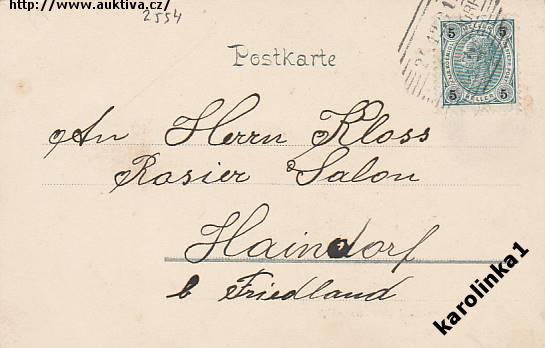 http://www.auktiva.cz/
2554
Postkarte
5 5
5 5
HELLER
An Herrn Kloss
Rasier Salon
Haindorf
b Friedland
karolinka1